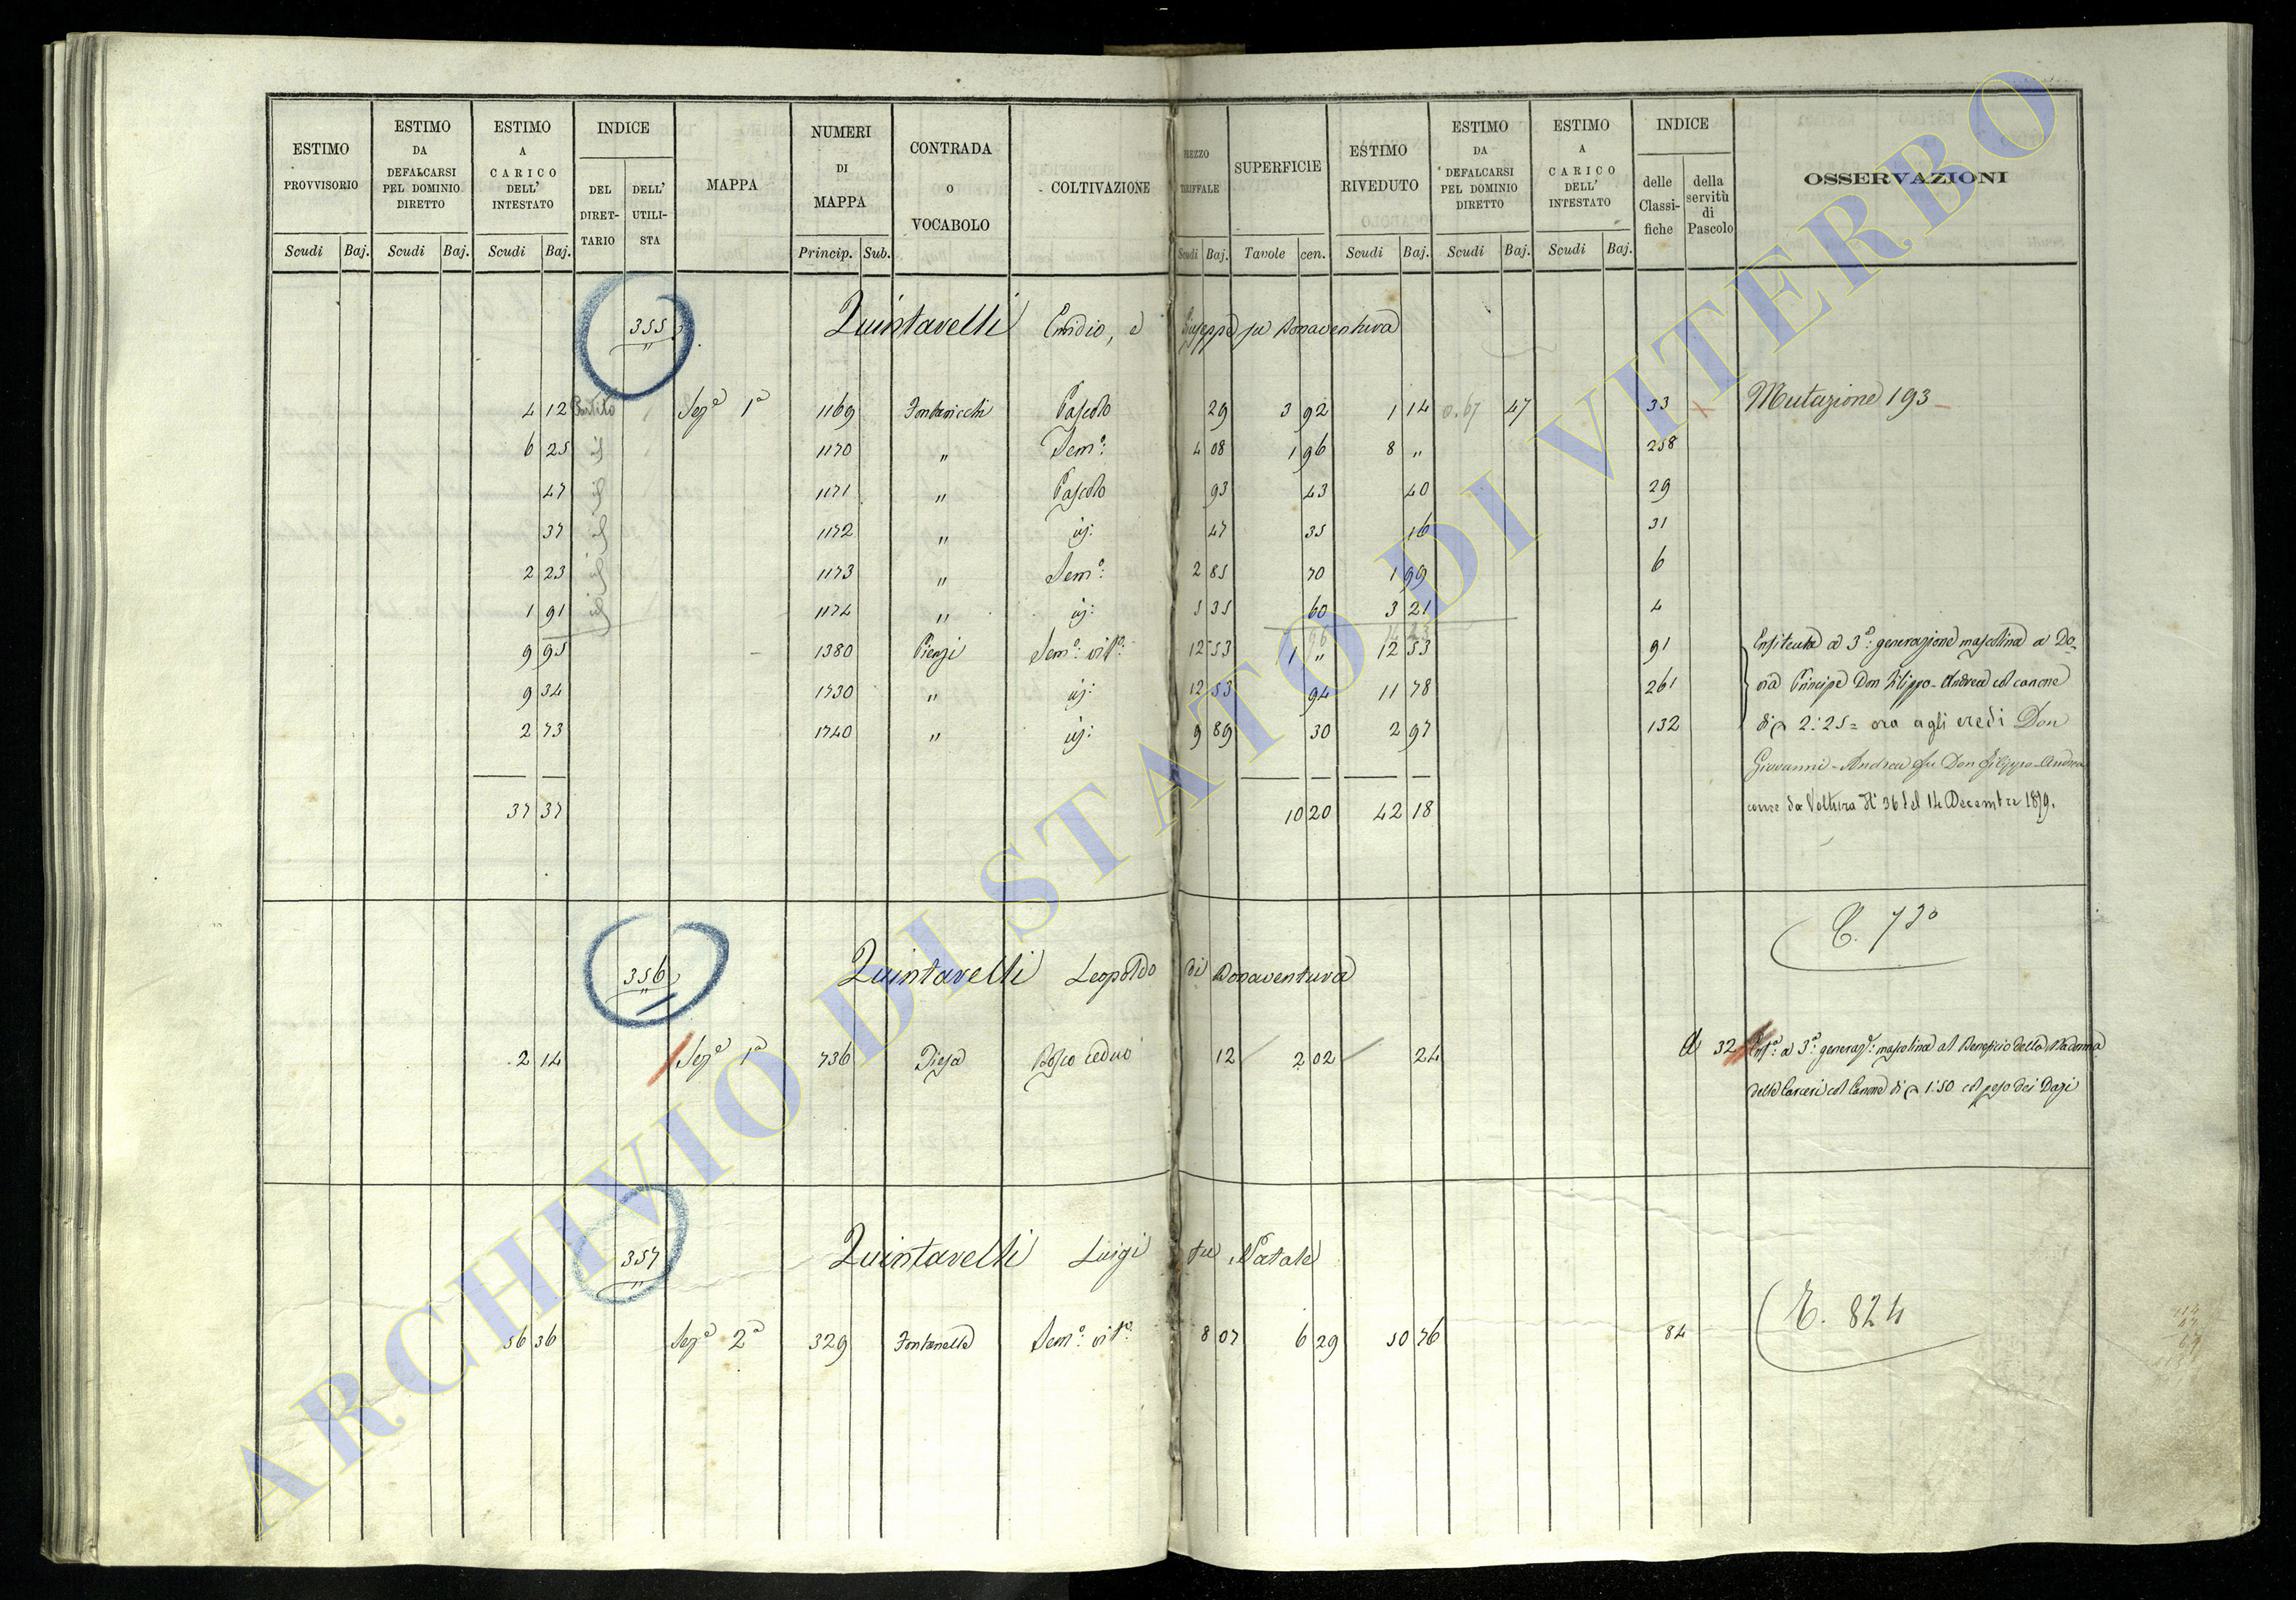 ESTIMO PROVVISORIO
ESTIMO DA DEFALCARSI PEL DOMINIO DIRETTO
ESTIMO A CARICO DELL' INTESTATO
INDICE
DEL DIRET-TARIO
DELL' UTILI-STA
MAPPA
NUMERI DI MAPPA
CONTRADA O VOCABOLO
COLTIVAZIONE
TARIFFALE
SUPERFICIE
ESTIMO RIVEDUTO
ESTIMO DA DEFALCARSI PEL DOMINIO DIRETTO
ESTIMO A CARICO DELL' INTESTATO
INDICE
delle Classi-fiche
della servitù di Pascolo
OSSERVAZIONI
Scudi Baj. Scudi Baj. Scudi Baj. Princip. Sub. Scudi Baj. Tavole cen. Scudi Baj. Scudi Baj. Scudi Baj.
355 Quintavelli Emidio, e Giuseppe fu Bonaventura
4 12 Sezᵉ 1ª 1169 Pascolo 29 3 92 1 14 0.67 47 33 Mutazione 193
6 25 id 1170 " Semº: 4 08 1 96 8 " 258
47 id 1171 " Pascolo 93 43 40 29
37 id 1172 " id: 47 35 16 31
2 23 id 1173 " Semº: 2 85 70 1 99 6
1 91 id 1174 " id: 5 35 60 3 21 4
9 95 1380 Pienzi Semº: vitº: 12 53 1 " 12 53 91 Enfiteuta a 3ª: generazione mascolina a Do-
9 34 1730 " id: 12 53 94 11 78 261 ria Principe Don Filippo-Andrea col canone
2 73 1740 " id: 9 89 30 2 97 132 di 2:25= ora agli eredi Don
Giovanni-Andrea fu Don Filippo-Andrea
37 37 10 20 42 18 come da Voltura Nº 36 del 14 Decembre 1879.
356 Quintavelli Leopoldo di Bonaventura
2 14 Sezᵉ 1ª 736 Piesa Bosco ceduo 12 2 02 24 32 Enfª: a 3ª: generazᵉ: mascolina al Beneficio della Madonna
delle Carceri col Canone di 1:50 col peso dei Dazi
357 Quintavelli Luigi fu Natale
56 36 Sezᵉ 2ª 329 Fontanelle Semº: vitº: 8 07 6 29 50 76 84 824
ARCHIVIO DI STATO DI VITERBO